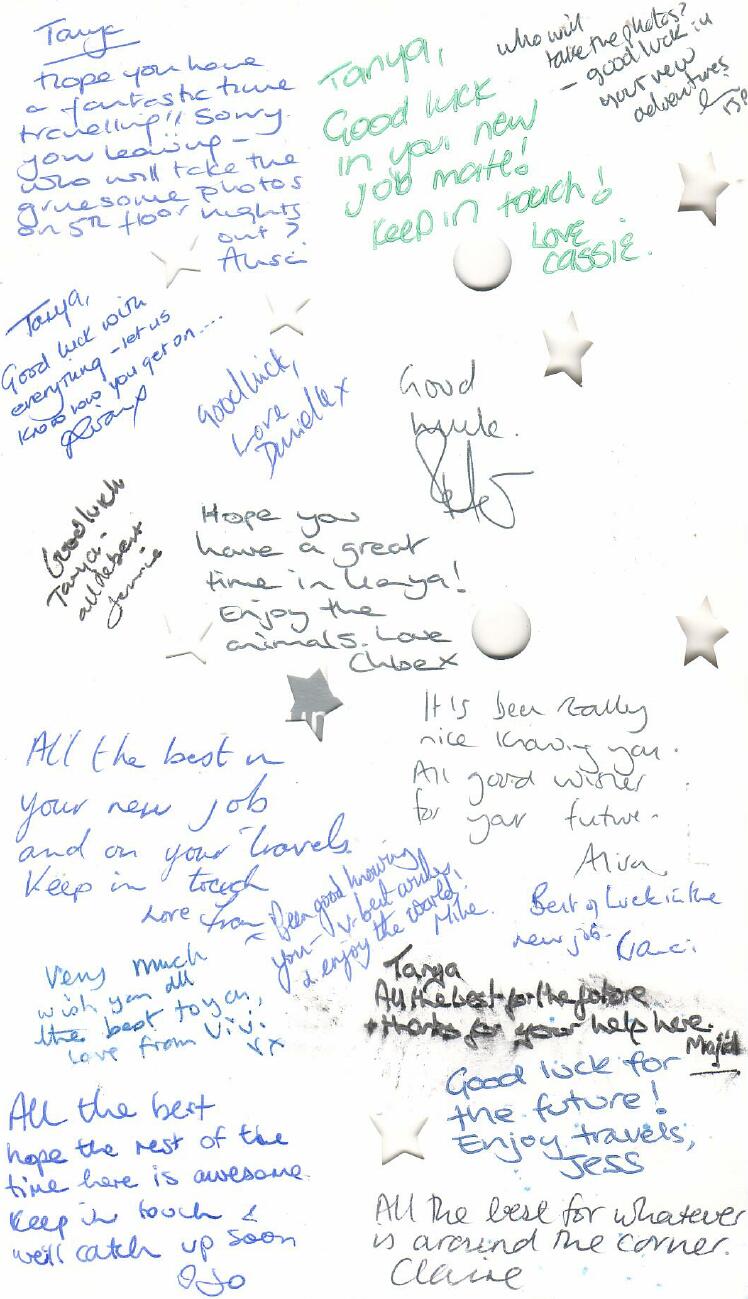 Tanya
Hope you have
a fantastic time
travelling!! Sorry
you leaving -
who will take the
gruesome photos
on 5th floor nights
out?
Tanya,
Good luck
in you new
job mate!
Keep in touch!
Love
Cassie.
who will
take the photos?
- good luck in
your new
adventures
Tanya,
Good luck with
everything - let us
know how you get on....
Good luck,
Love
Danielle x
Good
luck.
Good luck
Tanya -
all the best
Jennie
Hope you
have a great
time in Kenya!
Enjoy the
animals. Love
Chloe x
It is been really
nice knowing you.
All good wishes
for your future.
All the best in
your new job
and on your travels
Keep in touch
Love from
Been good knowing
you - v. best wishes,
& enjoy the world.
Mike.
Best of Luck in the
new job -
Very much
wish you all
the best to you,
Love from Vivi.
x
Tanya
All the best for the future
+ thanks for your help here.
Majid
Good luck for
the future!
Enjoy travels,
Jess
All the best
hope the rest of the
time here is awesome.
Keep in touch &
we'll catch up soon
Jo
All the best for whatever
is around the corner.
Claire